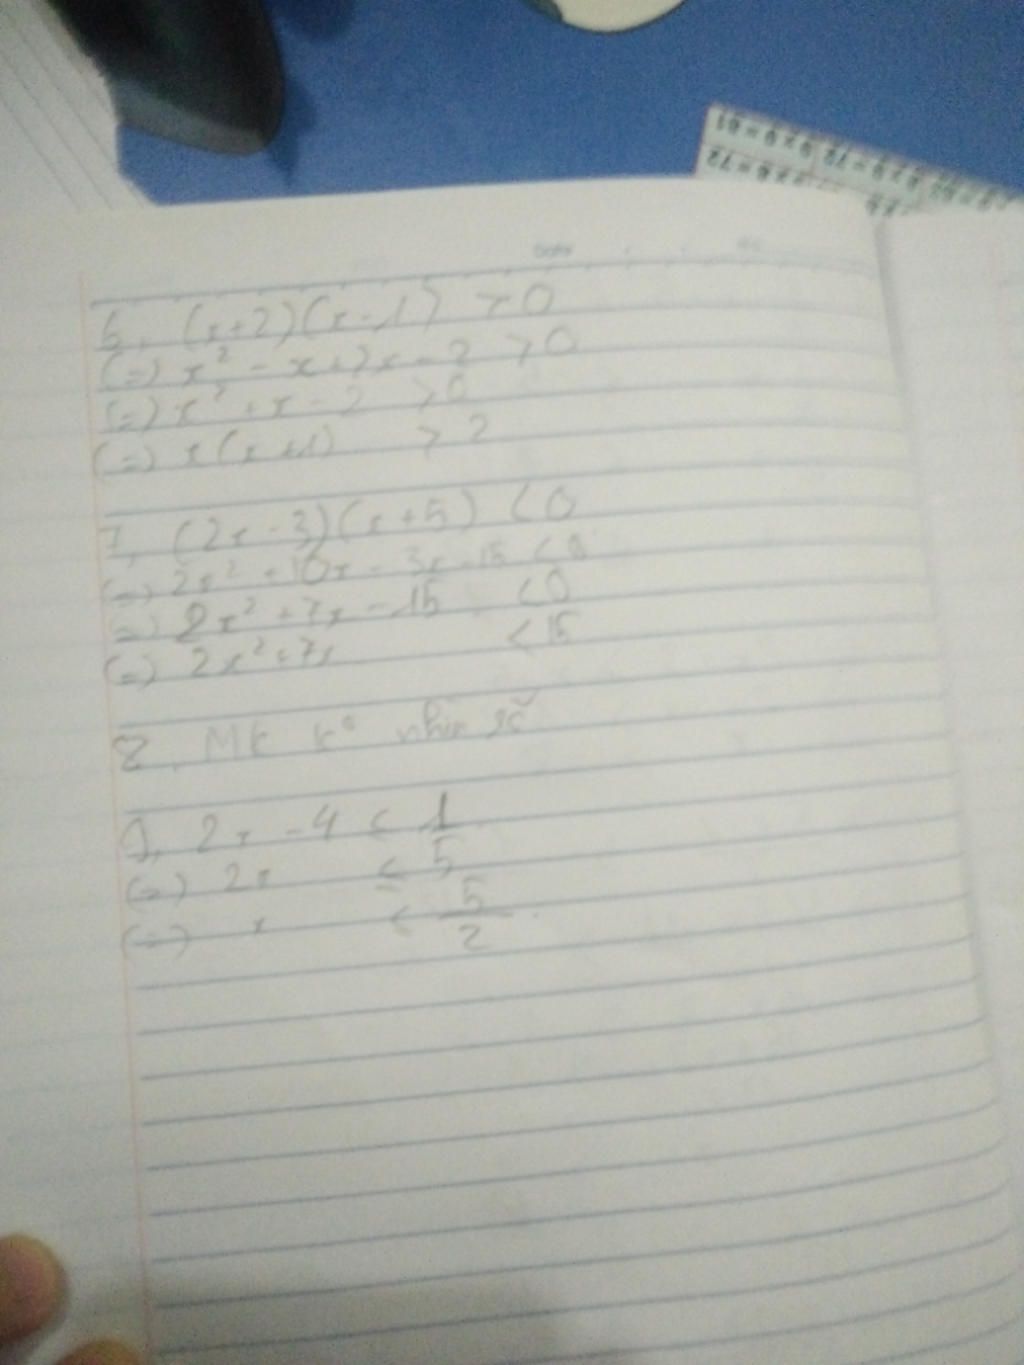 Date
6, (x+2)(x-1) > 0
(=) x² - x + 2x - 2 > 0
(=) x² + x - 2 > 0
(=) x(x+1) > 2
7, (2x-3)(x+5) < 0
(=) 2x² + 10x - 3x - 15 < 0
(=) 2x² + 7x - 15 < 0
(=) 2x² + 7x < 15
8, Mk k° nhìn rõ
9, 2x - 4 < 1
(=) 2x < 5
(=) x < 5/2
9x9=81
8x9=72